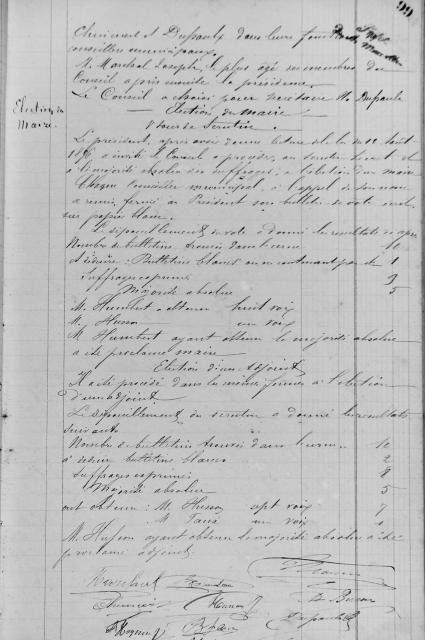 99
Chenimont et Dupaulx dans leurs fonctions
conseillers municipaux.
M. Marchal Joseph, le plus âgé des membres du
Conseil a pris ensuite la présidence.
Le Conseil a choisi pour secrétaire M. Dupaulx
Election du
Maire.
Election du Maire
Tour de Scrutin.
Le président, après avoir donné lecture de la loi du 12 Août
1876 a invité le Conseil à procéder, au scrutin secret et
à la majorité absolue des suffrages, à l'élection d'un maire
Chaque Conseiller municipal, à l'appel de son nom
a remis, fermé au Président son bulletin de vote écrit
sur papier blanc.
Le dépouillement du vote a donné les résultats ci après
Nombre de bulletins trouvés dans l'urne 10
A déduire: Bulletins blancs ou ne contenant pas de 1
Suffrages exprimés 9
Majorité absolue 5
M. Humbert a obtenu huit voix
M. Husson un voix
M. Humbert ayant obtenu la majorité absolue
a été proclamé maire
Election d'un Adjoint
Il a été procédé dans les mêmes formes à l'élection
d'un adjoint.
Le dépouillement du scrutin a donné les résultats
suivants
Nombre de bulletins trouvés dans l'urne 10
à déduire bulletins blancs 2
Suffrages exprimés 8
Majorité absolue 5
ont obtenu: M. Husson sept voix 7
M. un voix 1
M. Husson ayant obtenu la majorité absolue a été
proclamé adjoint